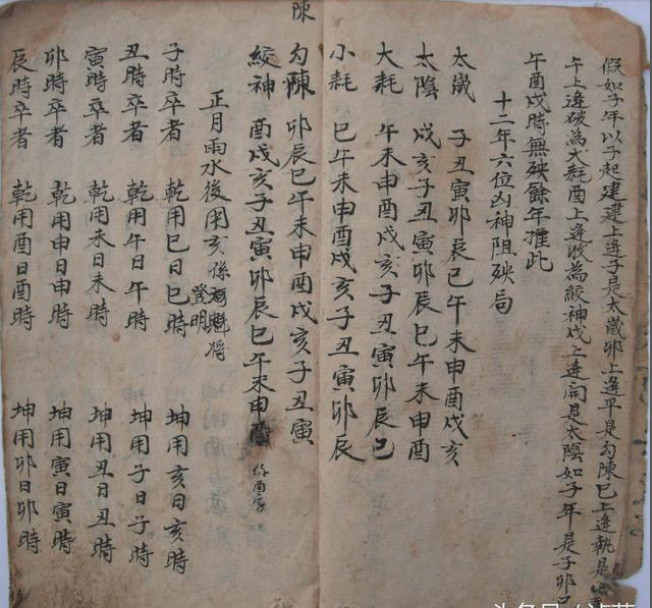 假如子年以子起建建上逢子是太歲卯上逢平是勾陳巳上逢執是
午上逢破為大耗酉上逢收為絞神戌上逢開是太陰如子年是子卯巳
午酉戌時無殃餘年推此
十二年六位凶神阻殃局
太歲 子丑寅卯辰巳午未申酉戌亥
太陰 戌亥子丑寅卯辰巳午未申酉
大耗 午未申酉戌亥子丑寅卯辰巳
小耗 巳午未申酉戌亥子丑寅卯辰
陳
勾陳 卯辰巳午未申酉戌亥子丑寅
絞神 酉戌亥子丑寅卯辰巳午未申
正月雨水後用亥係河魁將
登明
子時卒者 乾用巳日巳時 坤用亥日亥時
丑時卒者 乾用午日午時 坤用子日子時
寅時卒者 乾用未日未時 坤用丑日丑時
卯時卒者 乾用申日申時 坤用寅日寅時
辰時卒者 乾用酉日酉時 坤用卯日卯時